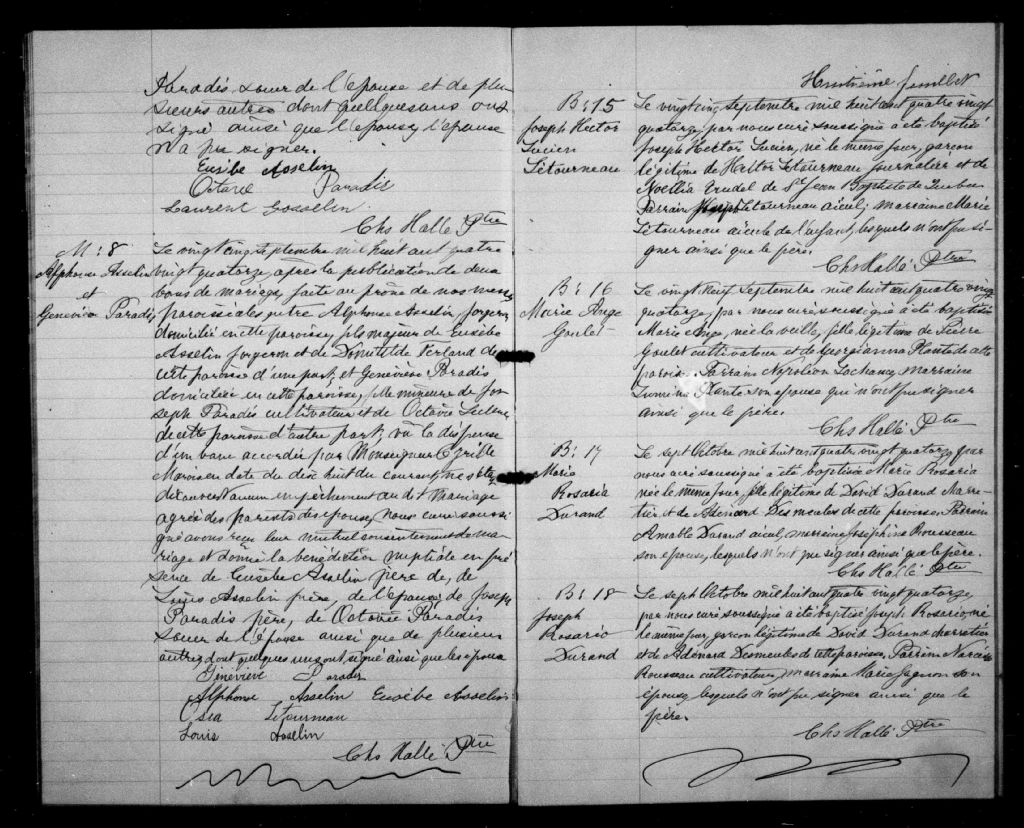 Paradis sœur de l'épouse et de plu-
sieurs autres dont quelquesuns ont
signé ainsi que l'epoux, l'epouse
n'a pu signer.
Eusèbe Asselin
Octavie Paradis
Laurent Gosselin.
Chs Hallé Ptre
M: 8
Alphonse Asselin
et
Geneviève Paradis
Le vingt cinq Septembre mil huit cent quatre
vingt quatorze, après la publication de deux
bans de mariage, faite au prône de nos messes
paroissiales entre Alphonse Asselin forgeron
domicilié en cette paroisse, fils majeur de Eusèbe
Asselin forgeron et de Domitilde Ferland de
cette paroisse d'une part, et Geneviève Paradis
domiciliée en cette paroisse, fille mineure de Jo-
seph Paradis cultivateur et de Octavie Leclerc
de cette paroisse d'autre part; vû la dispense
d'un banc accordée par Monseigneur Cyrille
Marois en date du dix huit du courant, ne s'étant
découvert aucun empêchement au dit mariage
agréé des parents des époux, Nous curé soussi-
gné avons reçu leur mutuel consentement de ma-
riage et donné la bénédiction nuptiale en pré
sence de Eusèbe Asselin père de, de
Asselin frère, de l'epoux; de Joseph
Paradis père, de Octavie Paradis
sœur de l'épouse ainsi que de plusieurs
autres dont quelques uns ont signé ainsi que les époux
Geneviève Paradis
Alphonse Asselin Eusèbe Asselin
Osea Letourneau
Louis Asselin
Chs Hallé Ptre
Huitième feuillet
B: 15
Joseph Hector
Lucien
Létourneau
Le vingt cinq Septembre mil huit cent quatre vingt
quatorze, par nous curé soussigné a été baptisé
Joseph Hector Lucien, né le même jour, garçon
légitime de Hector Letourneau journalier et de
Noëllia Trudel de St Jean Baptiste de Québec
Parrain Letourneau aieul; marraine Marie
Létourneau aieule de l'enfant, lesquels n'ont pu si-
gner ainsi que le père.
Chs Hallé Ptre
B: 16
Marie Ange
Goulet
Le vingt neuf Septembre mil huit cent quatre vingt
quatorze, par nous curé soussigné a été baptisée
Marie Ange, née la veille, fille légitime de Pierre
Goulet cultivateur et de Georgianna Plante de cette
paroisse. Parrain Napoléon Lachance, marraine
Plante son épouse qui n'ont pu signer
ainsi que le père.
Chs Hallé Ptre
B: 17
Marie
Rosaria
Durand
Le sept Octobre mil huit cent quatre vingt quatorze par
nous curé soussigné a été baptisée Marie Rosaria
née le même jour, fille légitime de David Durand
et de Adénard Desmeules de cette paroisse. Parrain
Amable Durand aieul, marraine Josephine Rousseau
son epouse, lesquels n'ont pu signer ainsi que le père.
Chs Hallé Ptre
B: 18
Joseph
Rosario
Durand
Le sept Octobre mil huit cent quatre vingt quatorze,
par nous curé soussigné a été baptisé Joseph Rosario, né
le même jour, garçon légitime de David Durand charretier
et de Adénard Desmeules de cette paroisse. Parrain Narcisse
Rousseau cultivateur, marraine Marie Gagnon son
épouse, lesquels n'ont pu signer ainsi que le
père.
Chs Hallé Ptre